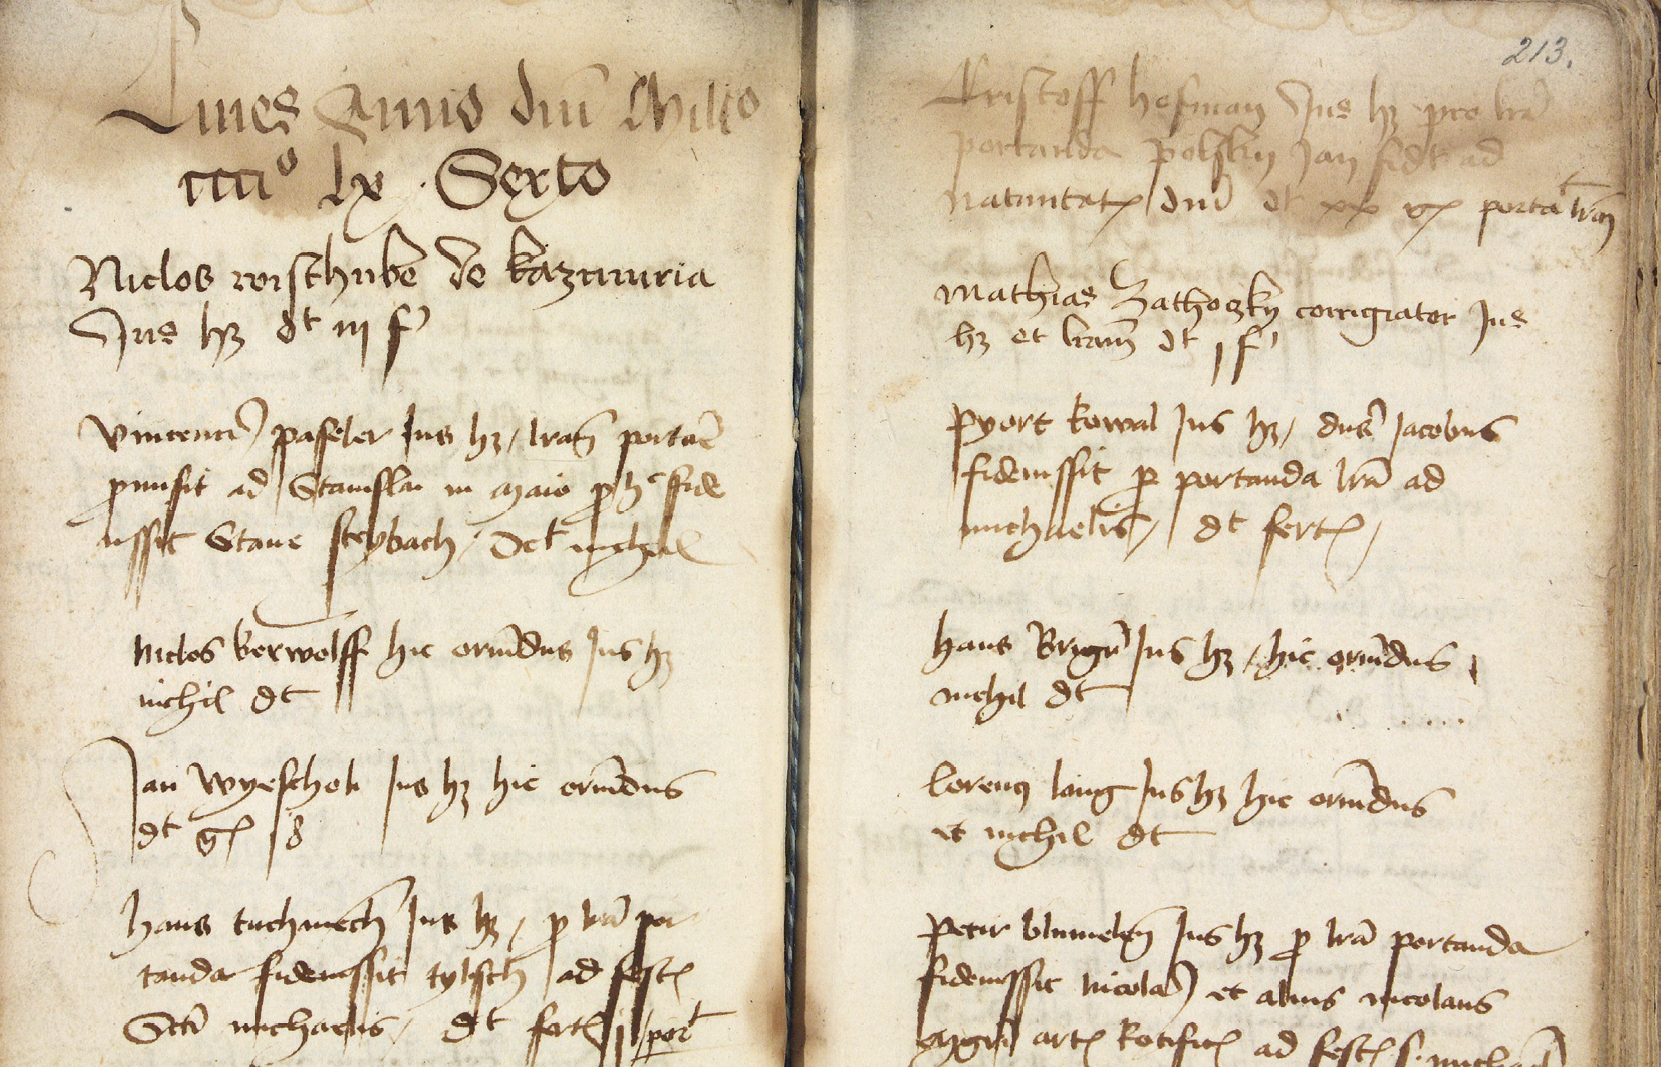 Cives Anno dni Millo
cccc° lx Sexto
Niclos wischube de kazimiria
Jus hz dt iij f
Vincenci paseler Jus hz lram portare
promisit ad Stanislai in Maio pro h° fide
iussit Stane steybach Det nichil
Niclos berwolff hic oriundus Jus hz
nichil dt
Jan wyeschok Jus hz hic oriundus
dt gr 18
hans tuchmech Jus hz pro lra por
tanda fideiussit tylisch ad fest
Scti michaelis dt fert j port
213.
Kristoff hofman Jus hz pro lra
portanda polskij Jan fidt ad
nativitat dni dt xx gr portat lram
Mathias Zathorzky corrigiator Jus
hz et lram dt j f
Pyotr kowal Jus hz dns Jacobus
fideiussit pro portanda lra ad
michaelis dt fert
hans Jus hz hic oriundus
nichil dt
lorencz lang Jus hz hic oriundus
et nichil dt
Petir blumeler Jus hz pro lra portanda
fideiussit Nicolai et alius nicolaus
mgri art ad fest s. michael